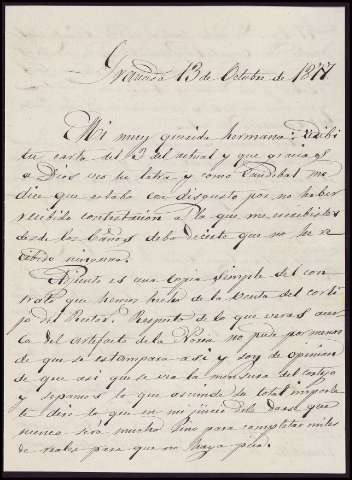 Granada 13 de Octubre de 1877
Mi muy querida hermana: recibi
tu carta del 3 del actual y que gracias
a Dios veo tu letra y como Sandobal me
dice que estaba con disgusto por no haber
recibido contestacion a la que me escribistes
desde los Baños debo decirte que no he re
cibido ninguna.
Adjunto es una copia simple del con
trato que hemos hecho de la venta del corti
jo del Rector. Respecto de lo que veras acer
ca del artefacto de la Noria no pude por menos
de que se estampara asi y soy de opinion
de que asi que se vea la mensura del cortijo
y sepamos lo que asciende su total importe
te dire lo que en mi juicio debe darse que
nunca sera mucho sino para completar miles
de reales para que no haya